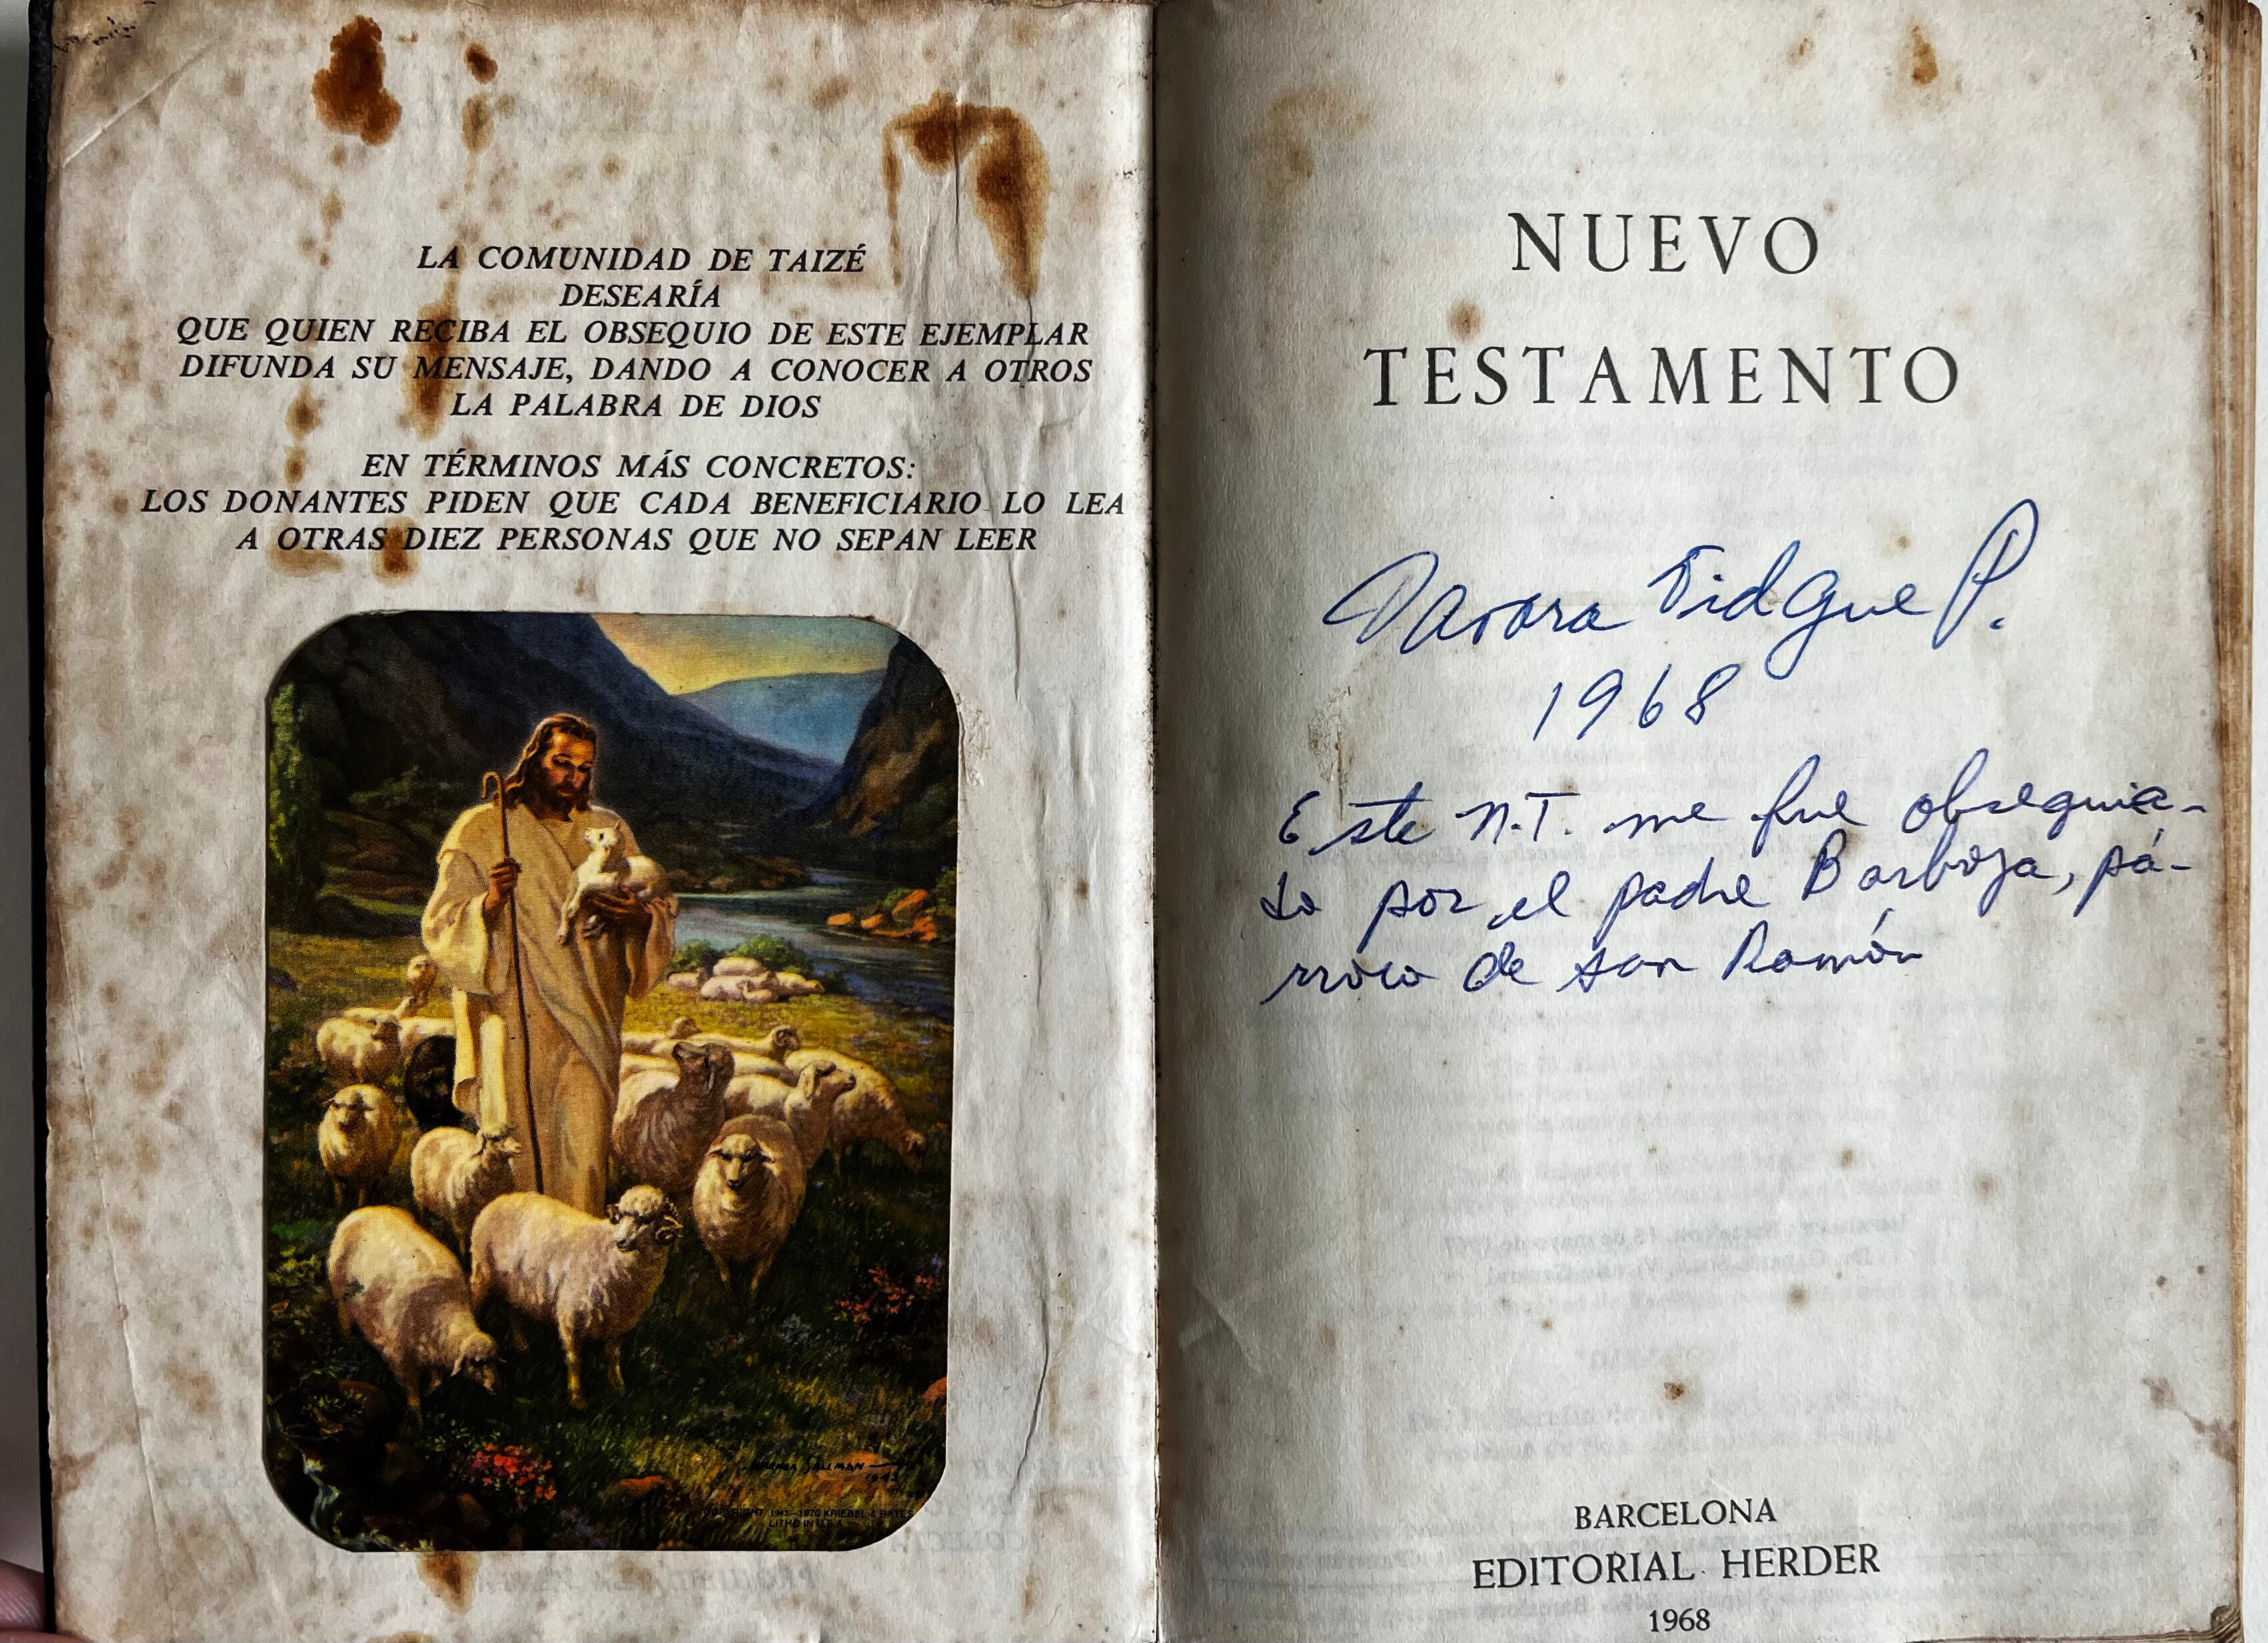 LA COMUNIDAD DE TAIZÉ
DESEARÍA
QUE QUIEN RECIBA EL OBSEQUIO DE ESTE EJEMPLAR
DIFUNDA SU MENSAJE, DANDO A CONOCER A OTROS
LA PALABRA DE DIOS
EN TÉRMINOS MÁS CONCRETOS:
LOS DONANTES PIDEN QUE CADA BENEFICIARIO LO LEA
A OTRAS DIEZ PERSONAS QUE NO SEPAN LEER
WARNER SALLMAN
COPYRIGHT 1943-1970 KRIEBEL & BATES
LITHO IN U.S.A.
NUEVO
TESTAMENTO
P.
1968
Este N.T. me fue obsequia-
do por el padre Barboza, pá-
rroco de San Ramón
BARCELONA
EDITORIAL HERDER
1968